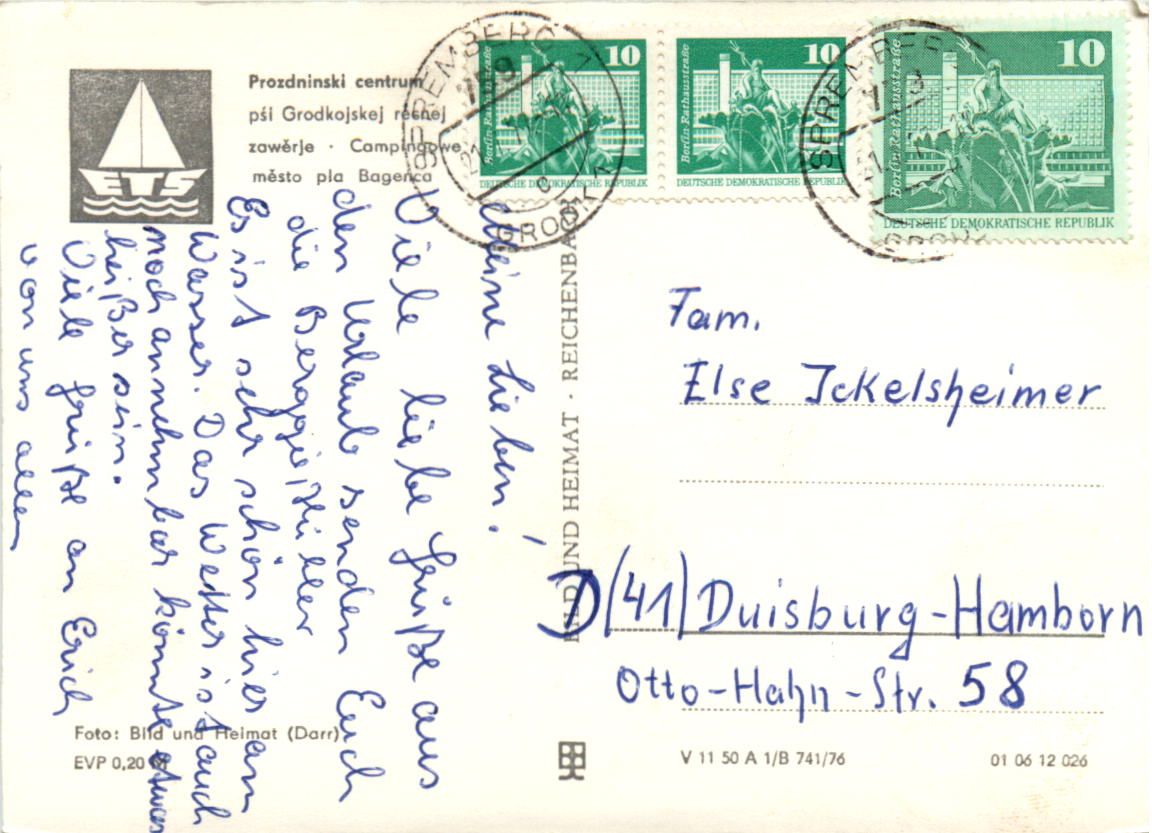 ETS
Prozdninski centrum
pśi Grodkojskej rěčnej
zawěrje · Campingowe
město pla Bagenca
SPREMBERG 1
GRODK 1
10
Berlin-Rathausstraße
DEUTSCHE DEMOKRATISCHE REPUBLIK
10
Berlin-Rathausstraße
DEUTSCHE DEMOKRATISCHE REPUBLIK
SPREMBE
10
Berlin-Rathausstraße
DEUTSCHE DEMOKRATISCHE REPUBLIK
Meine Lieben!
Viele liebe Grüße aus
den Urlaub senden Euch
die Berggießhübler
Es ist sehr schön hier am
Wasser. Das Wetter ist auch
noch annehmbar könnte etwas
heißer sein.
Viele Grüße an Erich
von uns allen
BILD UND HEIMAT · REICHENBACH
Fam.
Else Ickelsheimer
D (41) Duisburg-Hamborn
Otto-Hahn-Str. 58
Foto: Bild und Heimat (Darr)
EVP 0,20 M
V 11 50 A 1/B 741/76
01 06 12 026